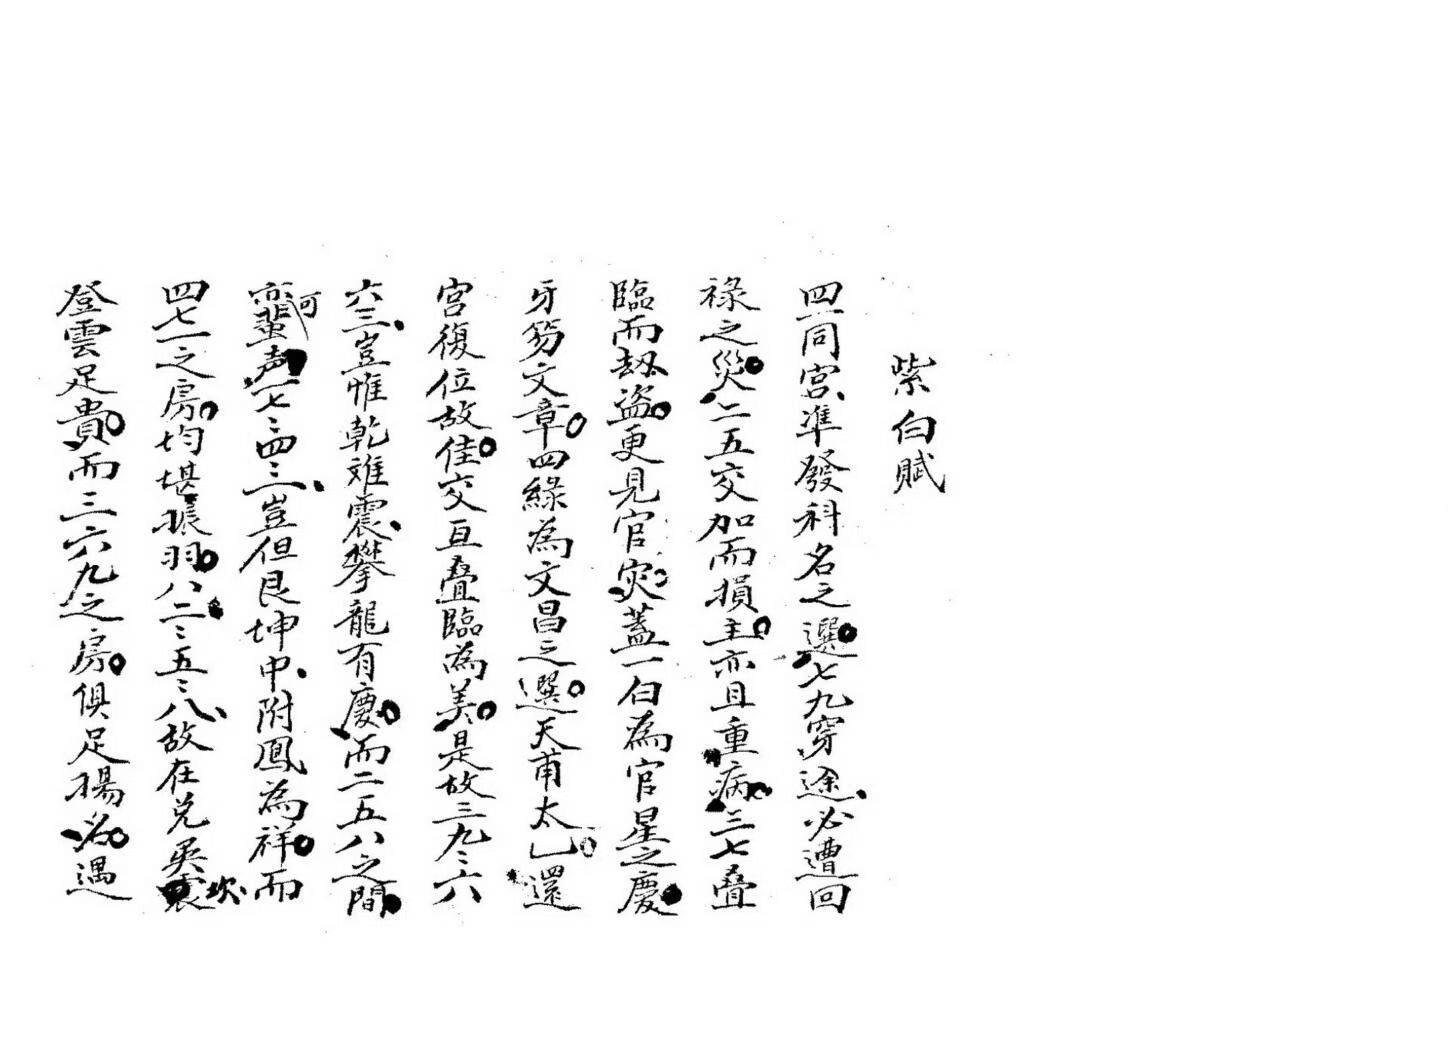 紫白賦
四一同宮準發科名之選七九穿途必遭回
祿之災二五交加而損主亦且重病三七疊
臨而劫盜更見官災蓋一白為官星之慶
牙笏文章四綠為文昌之選天甫太乙還
宮復位故佳交亘疊臨為美是故三九〻六
六三豈惟乾难震攀龍有慶而二五八之間
可
蜚声一七〻四三豈但艮坤中附鳳為祥而
四七一之房均堪振羽八二〻五〻八故在兌異
坎
登雲足貴而三六九之房俱足揚名遇